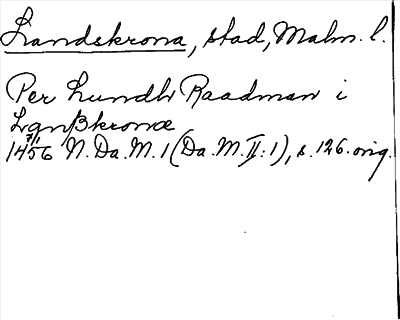 Landskrona, stad, Malm. l.
Per Lundh Raadman i
Lanßkronæ
1456 7/11 N. Da. M. 1 (Da. M. II: 1), s. 126. orig.